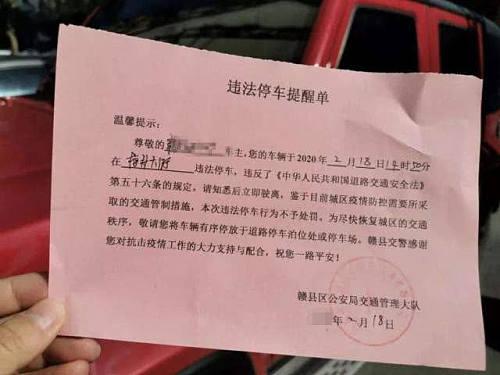 违法停车提醒单
温馨提示:
尊敬的 车主,您的车辆于2020年2月18日14时50分
在 违法停车,违反了《中华人民共和国道路交通安全法》
第五十六条的规定,请知悉后立即驶离,鉴于目前城区疫情防控需要所采
取的交通管制措施,本次违法停车行为不予处罚。为尽快恢复城区的交通
秩序,敬请您将车辆有序停放于道路停车泊位处或停车场。赣县交警感谢
您对抗击疫情工作的大力支持与配合,祝您一路平安!
赣县区公安局交通管理大队
年2月18日